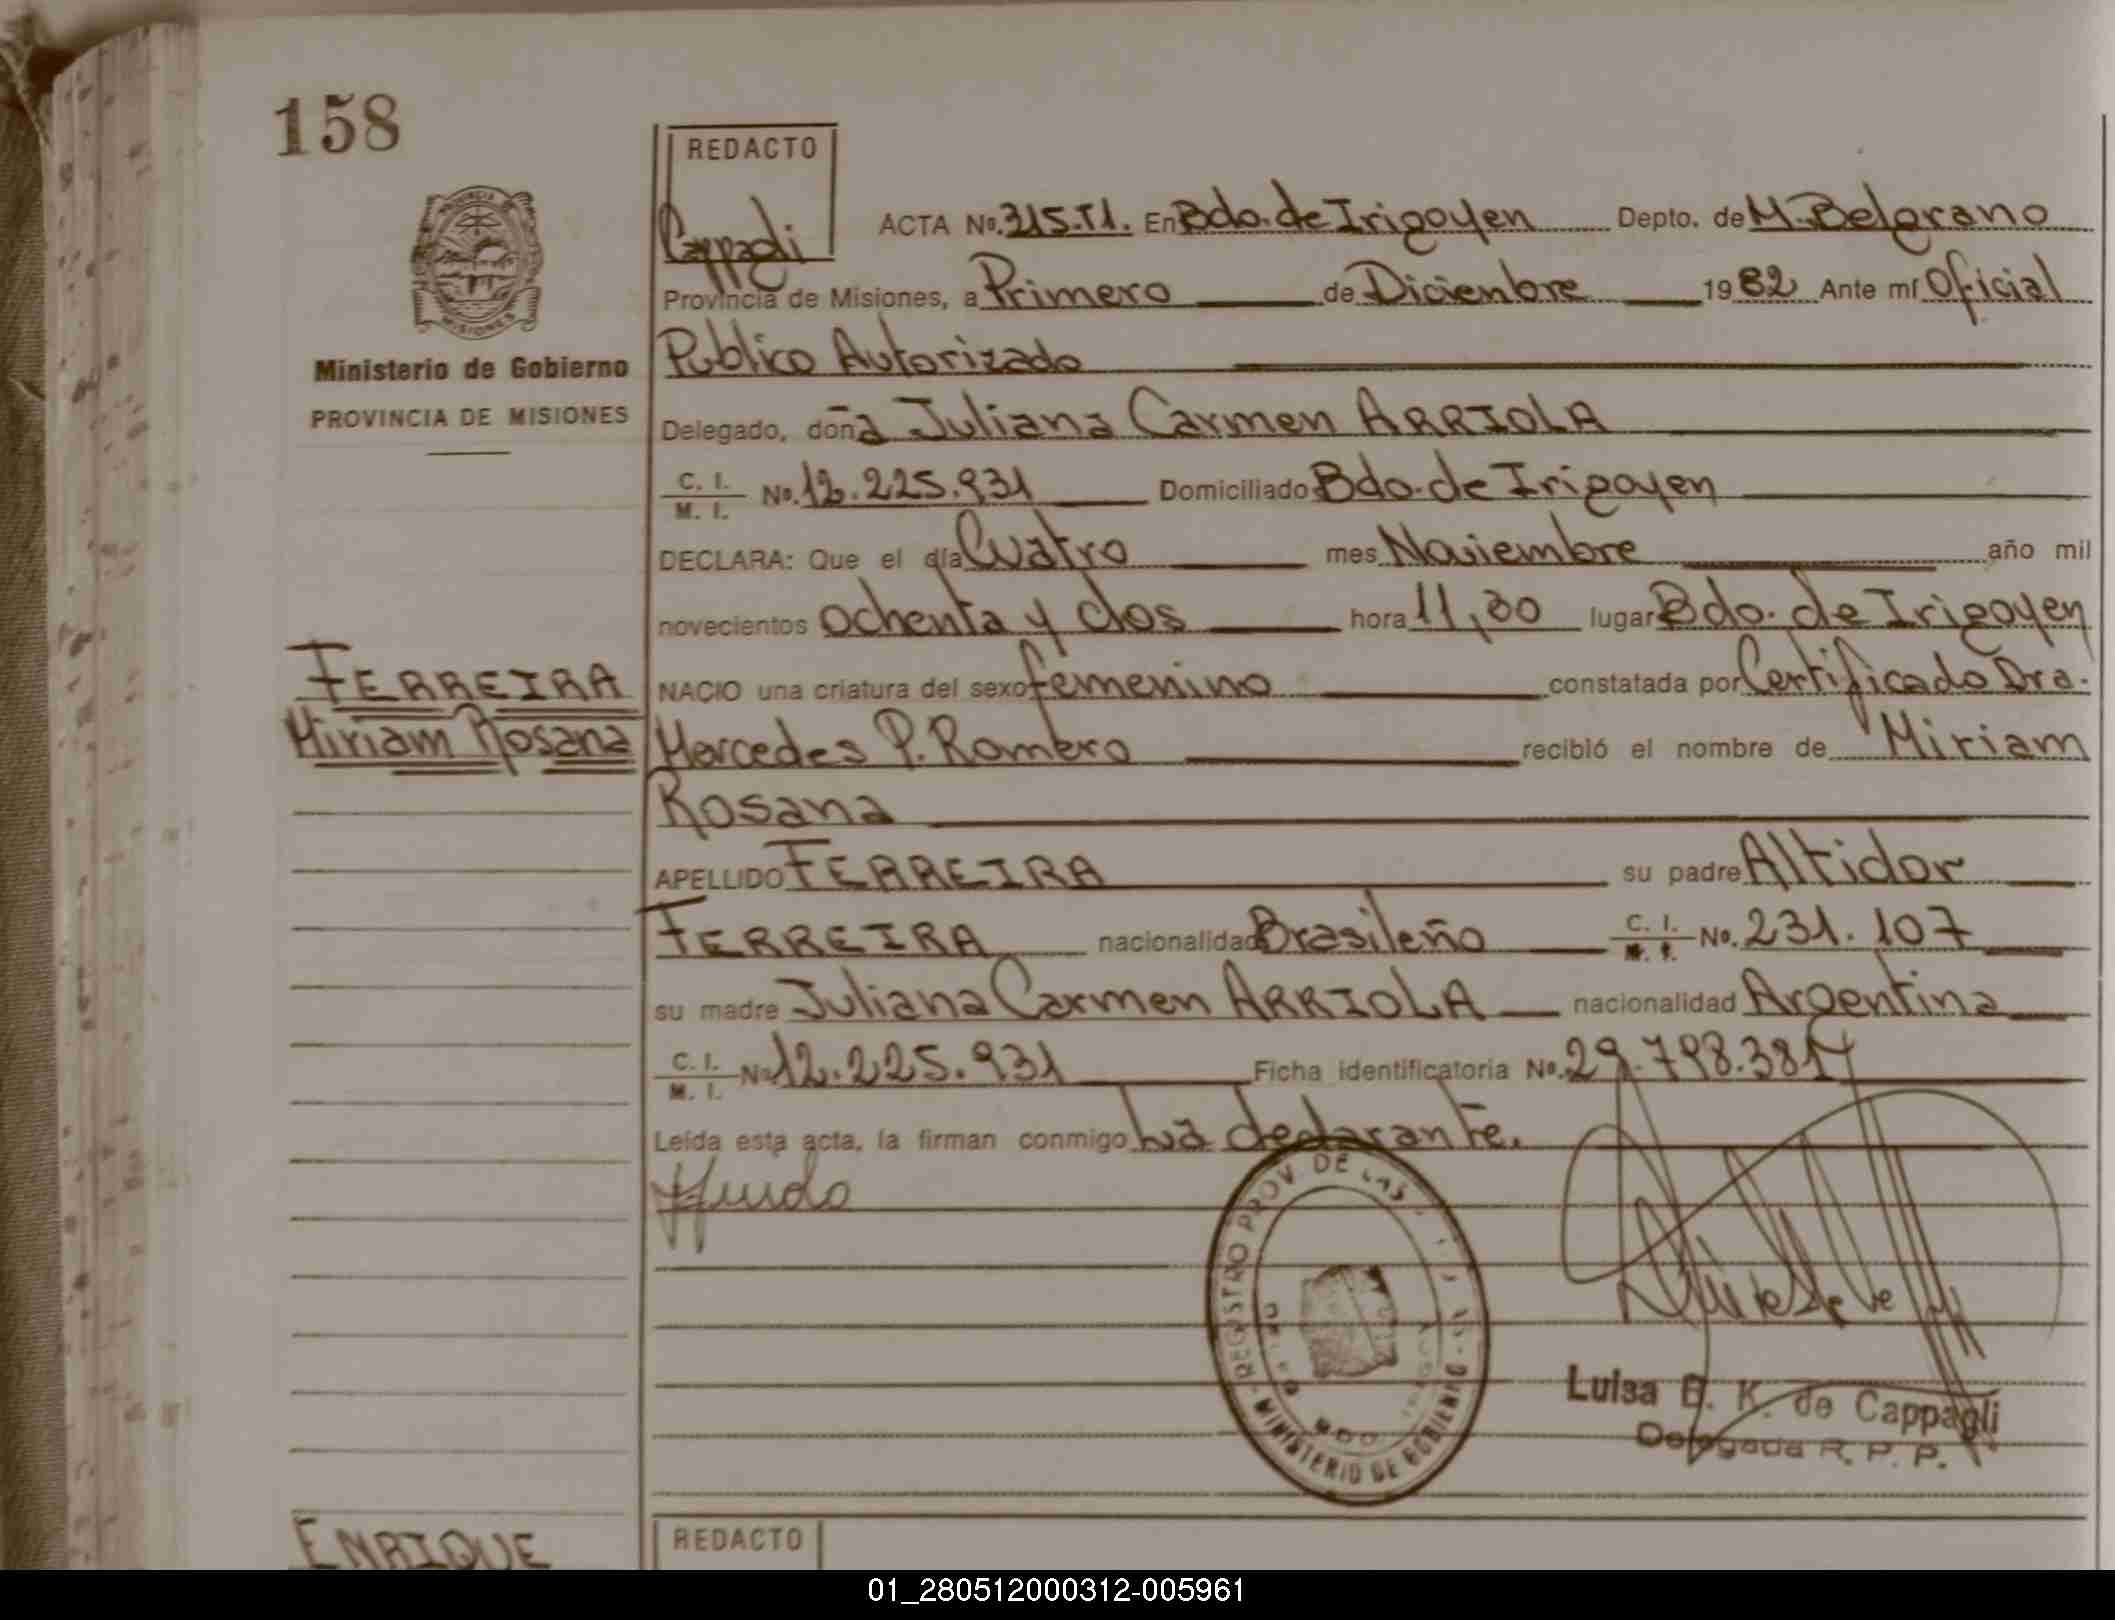 158
REDACTO
Cappagli
ACTA No. 315.T1. En Bdo. de Irigoyen Depto. de M. Belgrano
Provincia de Misiones, a Primero de Diciembre 1982 Ante mí Oficial
Publico Autorizado
PROVINCIA
MISIONES
Ministerio de Gobierno
PROVINCIA DE MISIONES
Delegado, doña Juliana Carmen ARRIOLA
C. I. M. I. No. 12.225.931 Domiciliado Bdo. de Irigoyen
DECLARA: Que el día Cuatro mes Noviembre año mil
novecientos ochenta y dos hora 11,30 lugar Bdo. de Irigoyen
FERREIRA
Miriam Rosana
NACIO una criatura del sexo femenino constatada por Certificado Dra.
Mercedes P. Romero recibió el nombre de Miriam
Rosana
APELLIDO FERREIRA su padre Altidor
FERREIRA nacionalidad Brasileño C. I. No. 231.107
su madre Juliana Carmen ARRIOLA nacionalidad Argentina
C. I. M. I. No 12.225.931 Ficha identificatoria No. 29.798.381
Leída esta acta, la firman conmigo La declarante.
REGISTRO PROV. DE LAS
MINISTERIO DE GOBIERNO
BDO
Luisa E. K. de Cappagli
Delegada R. P. P.
ENRIQUE
REDACTO
01_280512000312-005961